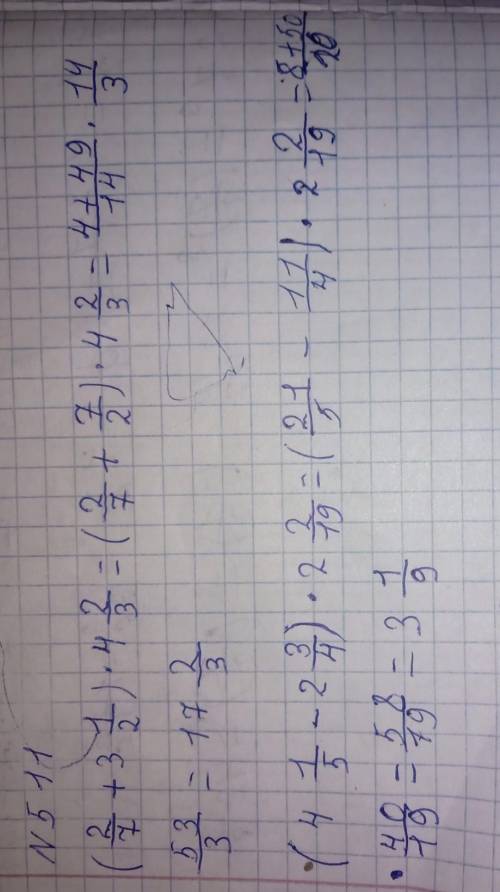 N 511
(2/7 + 3 1/2) · 4 2/3 = (2/7 + 7/2) · 4 2/3 = 4+49/14 · 14/3
53/3 = 17 2/3
(4 1/5 - 2 3/4) · 2 2/19 = (21/5 - 11/4) · 2 2/19 = 8+50/20
· 40/19 = 58/19 = 3 1/9